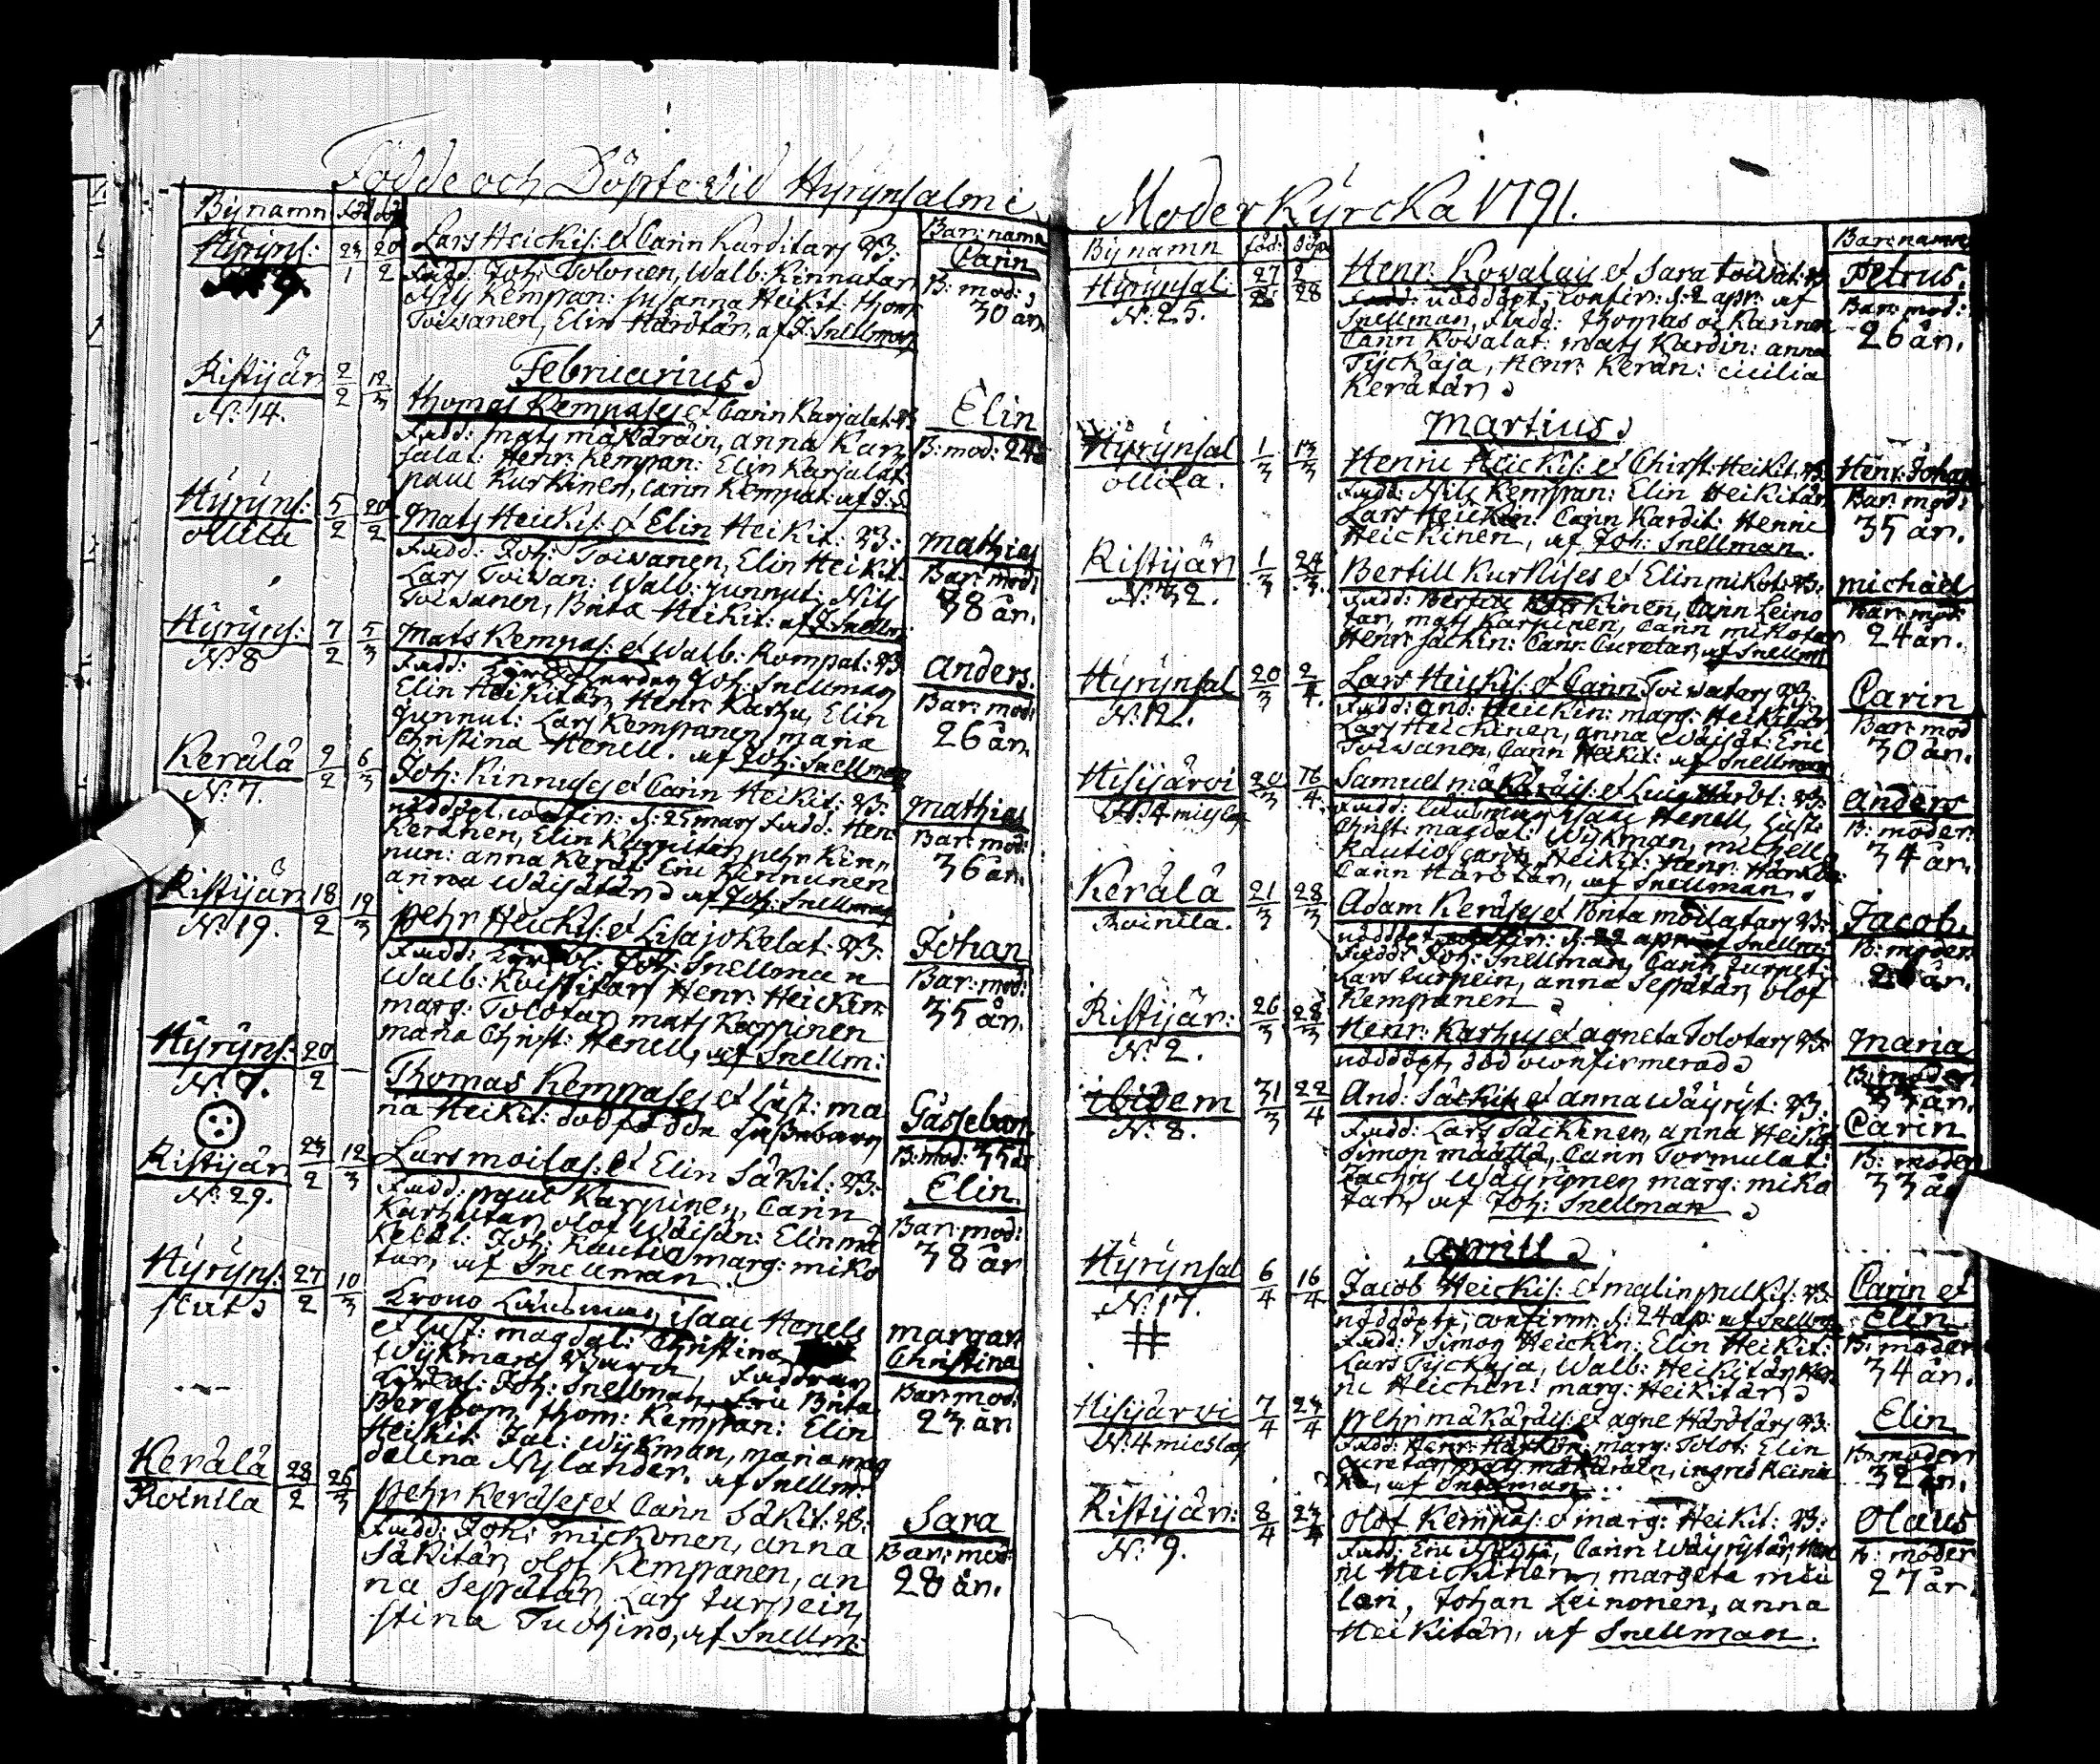 Födde och Döpte vid Hyrynsalmi
Bynamn föd döp
Barn: namn
Hyryns: 23/1 20/2
Lars Heickis: et Carin Karditars B:
Fadd: Joh: Tolonen, Walb: Kinnutar
Nils Kempan: Susanna Heikit: Thom:
Toiwanen, Elin Härötär, af J. Snellman
Carin
B: mod:
30 år.
Februarius
Ristijär 2/2 12/3
N:14.
Thomas Kempases et Carin Karjalat: B
Fadd: Mats mäkäräin, anna Kar
jalat: Henr: Kempan: Elin Karjalat
paul Kurkinen, Carin Kempat: af J. S.
Elin
B: mod: 24
Hyryns: 5/2 20/2
ollila
Mats Heickis: et Elin Heikit: B:
Fadd: Joh: Toiwanen, Elin Heikit:
Lars Toiwan: Walb: Junnut: Nils
Toiwanen, Brita Heikit: af J Snellm:
Mathias
Bar: mod:
38 år.
Hyryns: 7/2 5/3
N:8
Mats Kempas: et Walb: Rompat: B
Fadd: Joh: Snellman
Elin Heikitär, Henr: Karhu, Elin
Junnut: Lars Kempanen, maria
Christina Henell. af Joh: Snellman
Anders.
Bar: mod:
26 år.
Kerälä 9/2 6/3
N:7.
Joh: Kinnuses et Carin Heikit: B:
nöddöpt, confir: d: 25 mars Fadd: Hen:
Keränen, Elin Karpitar, pehr Kinn
nun: anna Kerät: Eric Kinnunen
anna Wäisätär af Joh: Snellman
Mathias
Bar: mod:
36 år.
Ristijär 18/2 19/3
N:19.
Pehr Heickis: et Lisa jokelat: B:
Fadd: Joh: Snellman
Walb: Kvistitars Henr: Heickin:
marg: Tolotar, mats Karpinen
maria Christ: Henell, af Snellm:
Johan
Bar: mod:
35 år.
Hyryns: 20/2 —
N:7.
Thomas Kempases et Just: ma
ria Heikit: dödfödde
Gåssebarn
B: mod: 35 år
Ristijär 23/2 12/3
N:29.
Lars moilas: et Elin Säkit: B:
Fadd: paul Karpinen, Carin
Karhutar, olof Wäisän: Elin mä
Kelät: Joh: Rautio, marg: miko
tar, af Snellman
Elin
Bar: mod:
38 år
Hyryns: 27/2 10/3
Krono Länsman, isaac Henels
et Just: magdal: Christina
Wijkmans Barn, Faddrar
Joh: Snellman, Brita
Bergbom, thom: Kempan: Elin
Heikit: Jac: Wijkman, maria mag
dalena Nylander. af Snellm:
margar:
Christina
Bar: mod:
23 år
Kerälä 28/2 26/3
Roinila
Pehr Keräses et Carin Säkit: B:
Fadd: Joh: mickonen, anna
Säkitär, olof Kempanen, an
na Seppätär, Lars turpein,
stina Tuohino, af Snellm:
Sara
Bar: mod:
28 år.
Moder Kyrcka 1791.
Bynamn föd: döp
Barn: namn
Hyrynsal: 27/2 28/2
N:25.
Henr: Kowalais et Sara toiwat: B
nöddöpt; confir: d: 2 apr: af
Snellman, Fadd: thomas oikarinen
Carin Kowalat: mats Kardin: anna
Tyckäjä, Henr: Kerän: cicilia
Kerätär
Petrus.
Bar: mod:
26 år.
Martius
Hyrynsal 1/3 13/3
ollila.
Henric Heickis: et Christ: Heikit: B:
Fadd: Nils Kempan: Elin Heikitär
Lars Heickin: Carin Kardit: Henric
Heickinen, af Joh: Snellman.
Henr: Johan
Bar: mod:
35 år.
Ristijär 1/3 24/3
N:32.
Bertill Kurkises et Elin mikot: B:
Fadd: Bertill Kurkinen, Carin Leino
tar, mats Karpinen, Carin mikotar
Henr: Säckin: Carin Curetar, af Snellm
Michael
Bar: mod:
24 år.
Hyrynsal 20/3 2/4
N:12.
Lars Heickis: et Carin Toiwatars B:
Fadd: and: Heickin: marg: Heikitär
Lars Heickinen, anna Wäisät: Eric
Toiwanen, Carin Heikit: af Snellman
Carin
Bar: mod
30 år.
Hisijärvi 20/3 16/4
Samuel mäkäräis: et Luig Häröt: B:
Fadd: Länsman isaac Henell, Just:
Christ: magdal: Wijkman, michell
Rautio, Carin Heikit: Henr: Härkö:
Carin Härötär, af Snellman
Anders
B: moder
34 år.
Kerälä 21/3 28/3
Roinila.
Adam Keräses et Brita moilatars B:
nöddöpt confir: d: 22 apr: af Snellm:
Fadd: Joh: Snellman, Carin turpet:
Lars turpein, anna Seppätär, olof
Kempanen
Jacob.
B: moder
26 år.
Ristijär: 26/3 28/3
N:2.
Henr: Karhus et agneta Tolotars B:
nöddöpt, död oconfirmerad
Maria
B: moder
34 år.
ibidem 31/3 22/4
N:8.
And: Säckis et anna Wäyryt: B:
Fadd: Lars Säckinen, anna Heikit
Simon maatta, Carin Tormulat:
Zachris Wäyrynen marg: miko
tar, af Joh: Snellman
Carin
B: moder
33 år
Aprill
Hyrynsal 6/4 16/4
N:17.
Jacob Heickis: et malin pulkis: B:
nöddöpte, confirm: d: 24 ap: af Snellm
Fadd: Simon Heickin: Elin Heikit:
Lars Tyckäjä, Walb: Heikitär, Hen
ric Heicken: marg: Heikitär
Carin et
Elin
B: moder
34 år.
Hisijärvi 7/4 24/4
Pehr mäkäräis: et agne Härötärs B:
Fadd: Henr: Härkön: marg: Tolot: Elin
Curetar, mats mäkäräin, ingrid Keinä
af Snellman
Elin
B: moder
32 år.
Ristijär: 8/4 24/4
N:9.
Olof Kempas: et marg: Heikit: B:
Fadd: Eric Carin Wäyrytär, Hen
ric Heickinen, margeta miei
läin, Johan Leinonen, anna
Heikitär, af Snellman.
Olaus
B: moder
27 år.